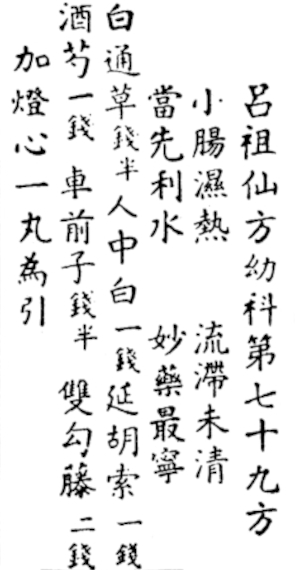 呂祖仙方幼科第七十九方
小腸濕熱 流滯未清
當先利水 妙藥最寧
白通草錢半人中白一錢延胡索一錢
酒芍一錢 車前子錢半 雙勾藤二錢
加燈心一丸為引